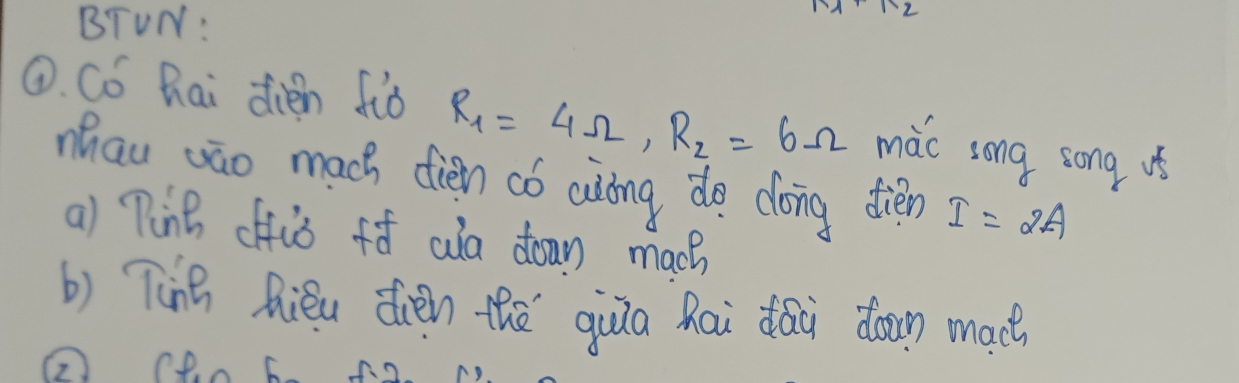 R₁ + R₂
BTVN:
①. Có hai điện trở R₁ = 4Ω, R₂ = 6Ω mắc song song vs
nhau vào mạch điện có cường độ dòng điện I = 2A
a) Tính đtrở tđ của đoạn mạch
b) Tính hiệu điện thế giữa hai đầu đoạn mạch
②